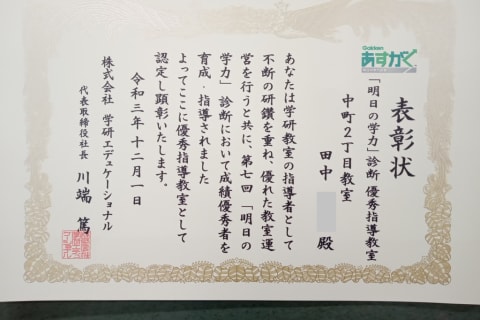 表彰状
Gakken
あすがく
「明日の学力」診断 優秀指導教室
中町2丁目教室
田中 殿
あなたは学研教室の指導者として
不断の研鑽を重ね、優れた教室運
営を行うと共に、第七回「明日の
学力」診断において成績優秀者を
育成・指導されました
よってここに優秀指導教室として
認定し顕彰いたします。
令和三年十二月一日
株式会社 学研エデュケーショナル
代表取締役社長 川端 篤